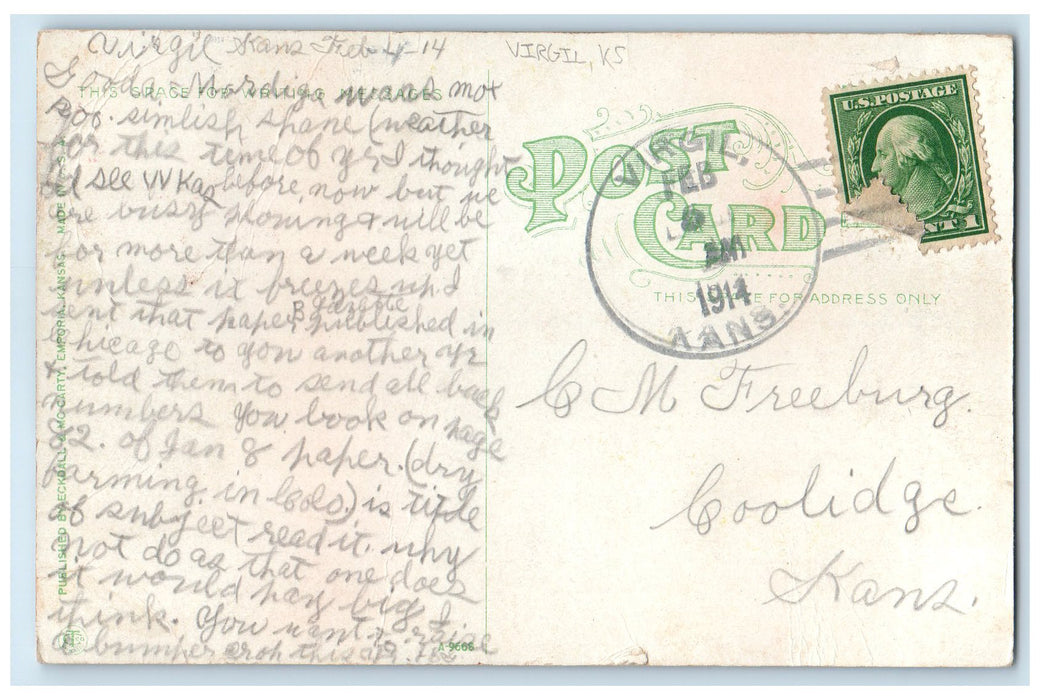 Virgil Kans Feb 4-14
VIRGIL, KS
THIS SPACE FOR WRITING MESSAGES
Good Mording was not
simlish shane (weather
for this time of yr I thought
I'd see before now but we
are busy & will be
for more than a week yet
unless it freezes up I
B Gazette
sent that paper published in
Chicago to you another yr
& told them to send all back
numbers you look on page
92. of Jan 8 paper. (dry
farming in Colo.) is title
of subject read it. why
not do as that one does
it would pay big I
think. You want to raise
a bumper crop this yr.
PUBLISHED BY AECKDALL & MCCARTY, EMPORIA, KANSAS. MADE IN U.S.A.
A-9666
POST
CARD
THIS SPACE FOR ADDRESS ONLY
VIRGIL,
FEB
AM
1914
KANS.
U.S. POSTAGE
1
C M Freeburg.
Coolidge.
Kans.